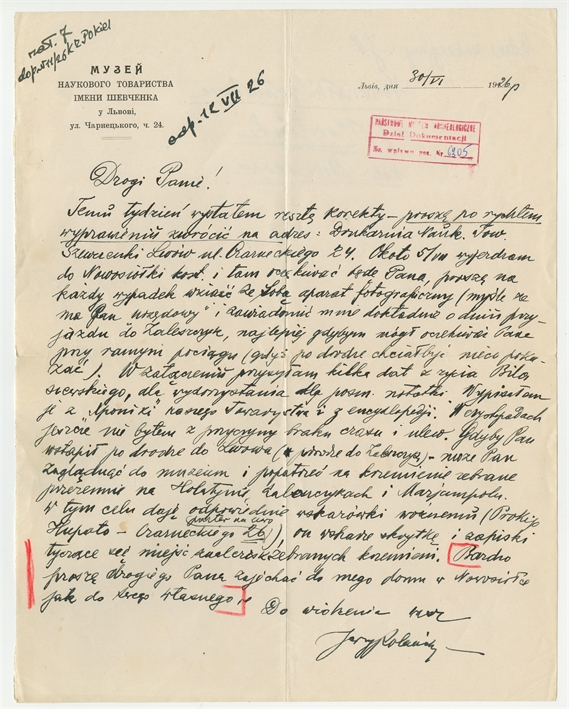 zał. 7
МУЗЕЙ
НАУКОВОГО ТОВАРИСТВА
ІМЕНИ ШЕВЧЕНКА
у Львові,
ул. Чарнецького, ч. 24.
odp. 12 VII 26
Львів, дня 30/VI 1926 р
PAŃSTWOWE MUZEUM ARCHEOLOGICZNE
Dział Dokumentacji
Ks. wpływu poz. Nr 6205
Drogi Panie!
Temu tydzień wysłałem resztę korekty – proszę po rychłem
wyprawieniu zwrócić na adres: Drukarnia Nauk. Tow.
Szewczenki Lwów ul. Czarneckiego 24. Około 5/VII wyjeżdżam
do Nowosiółki kost. i tam oczekiwać będę Pana, proszę na
każdy wypadek wziąść ze sobą aparat fotograficzny (myślę że
ma Pan urzędowy) i zawiadomić mnie dokładnie o dniu przy-
jazdu do Zaleszczyk, najlepiej gdybym mógł oczekiwać Pana
przy rannym pociągu (gdyż po drodze chciałbym nieco poka-
zać). W załączeniu przysyłam kilka dat z życia Bila-
szewskiego, dla wydorzystania dla pośm. notatki. Wypisałem
je z "Chroniki" naszego Towarzystwa i z encyklopedji. W Czystopadach
jeszcze nie byłem z przyczyny braku czasu i ulew. Gdyby Pan
wstąpił po drodze do Lwowa – może Pan
zaglądnąć do muzeum i popatrzeć na krzemienie zebrane
przezemnie na Holatynie, Zaleszczykach i Marjampolu.
W tym celu daję odpowiednie wskazówki woźnemu (Prokip
Hupało – Czarneckiego 26), on wskaże skrytkę i zapiski
tyczące się miejsc znalezisk zebranych krzemieni. Bardzo
proszę drogiego Pana zajechać do mego domu w Nowosiółce
jak do swego własnego.
Do widzenia